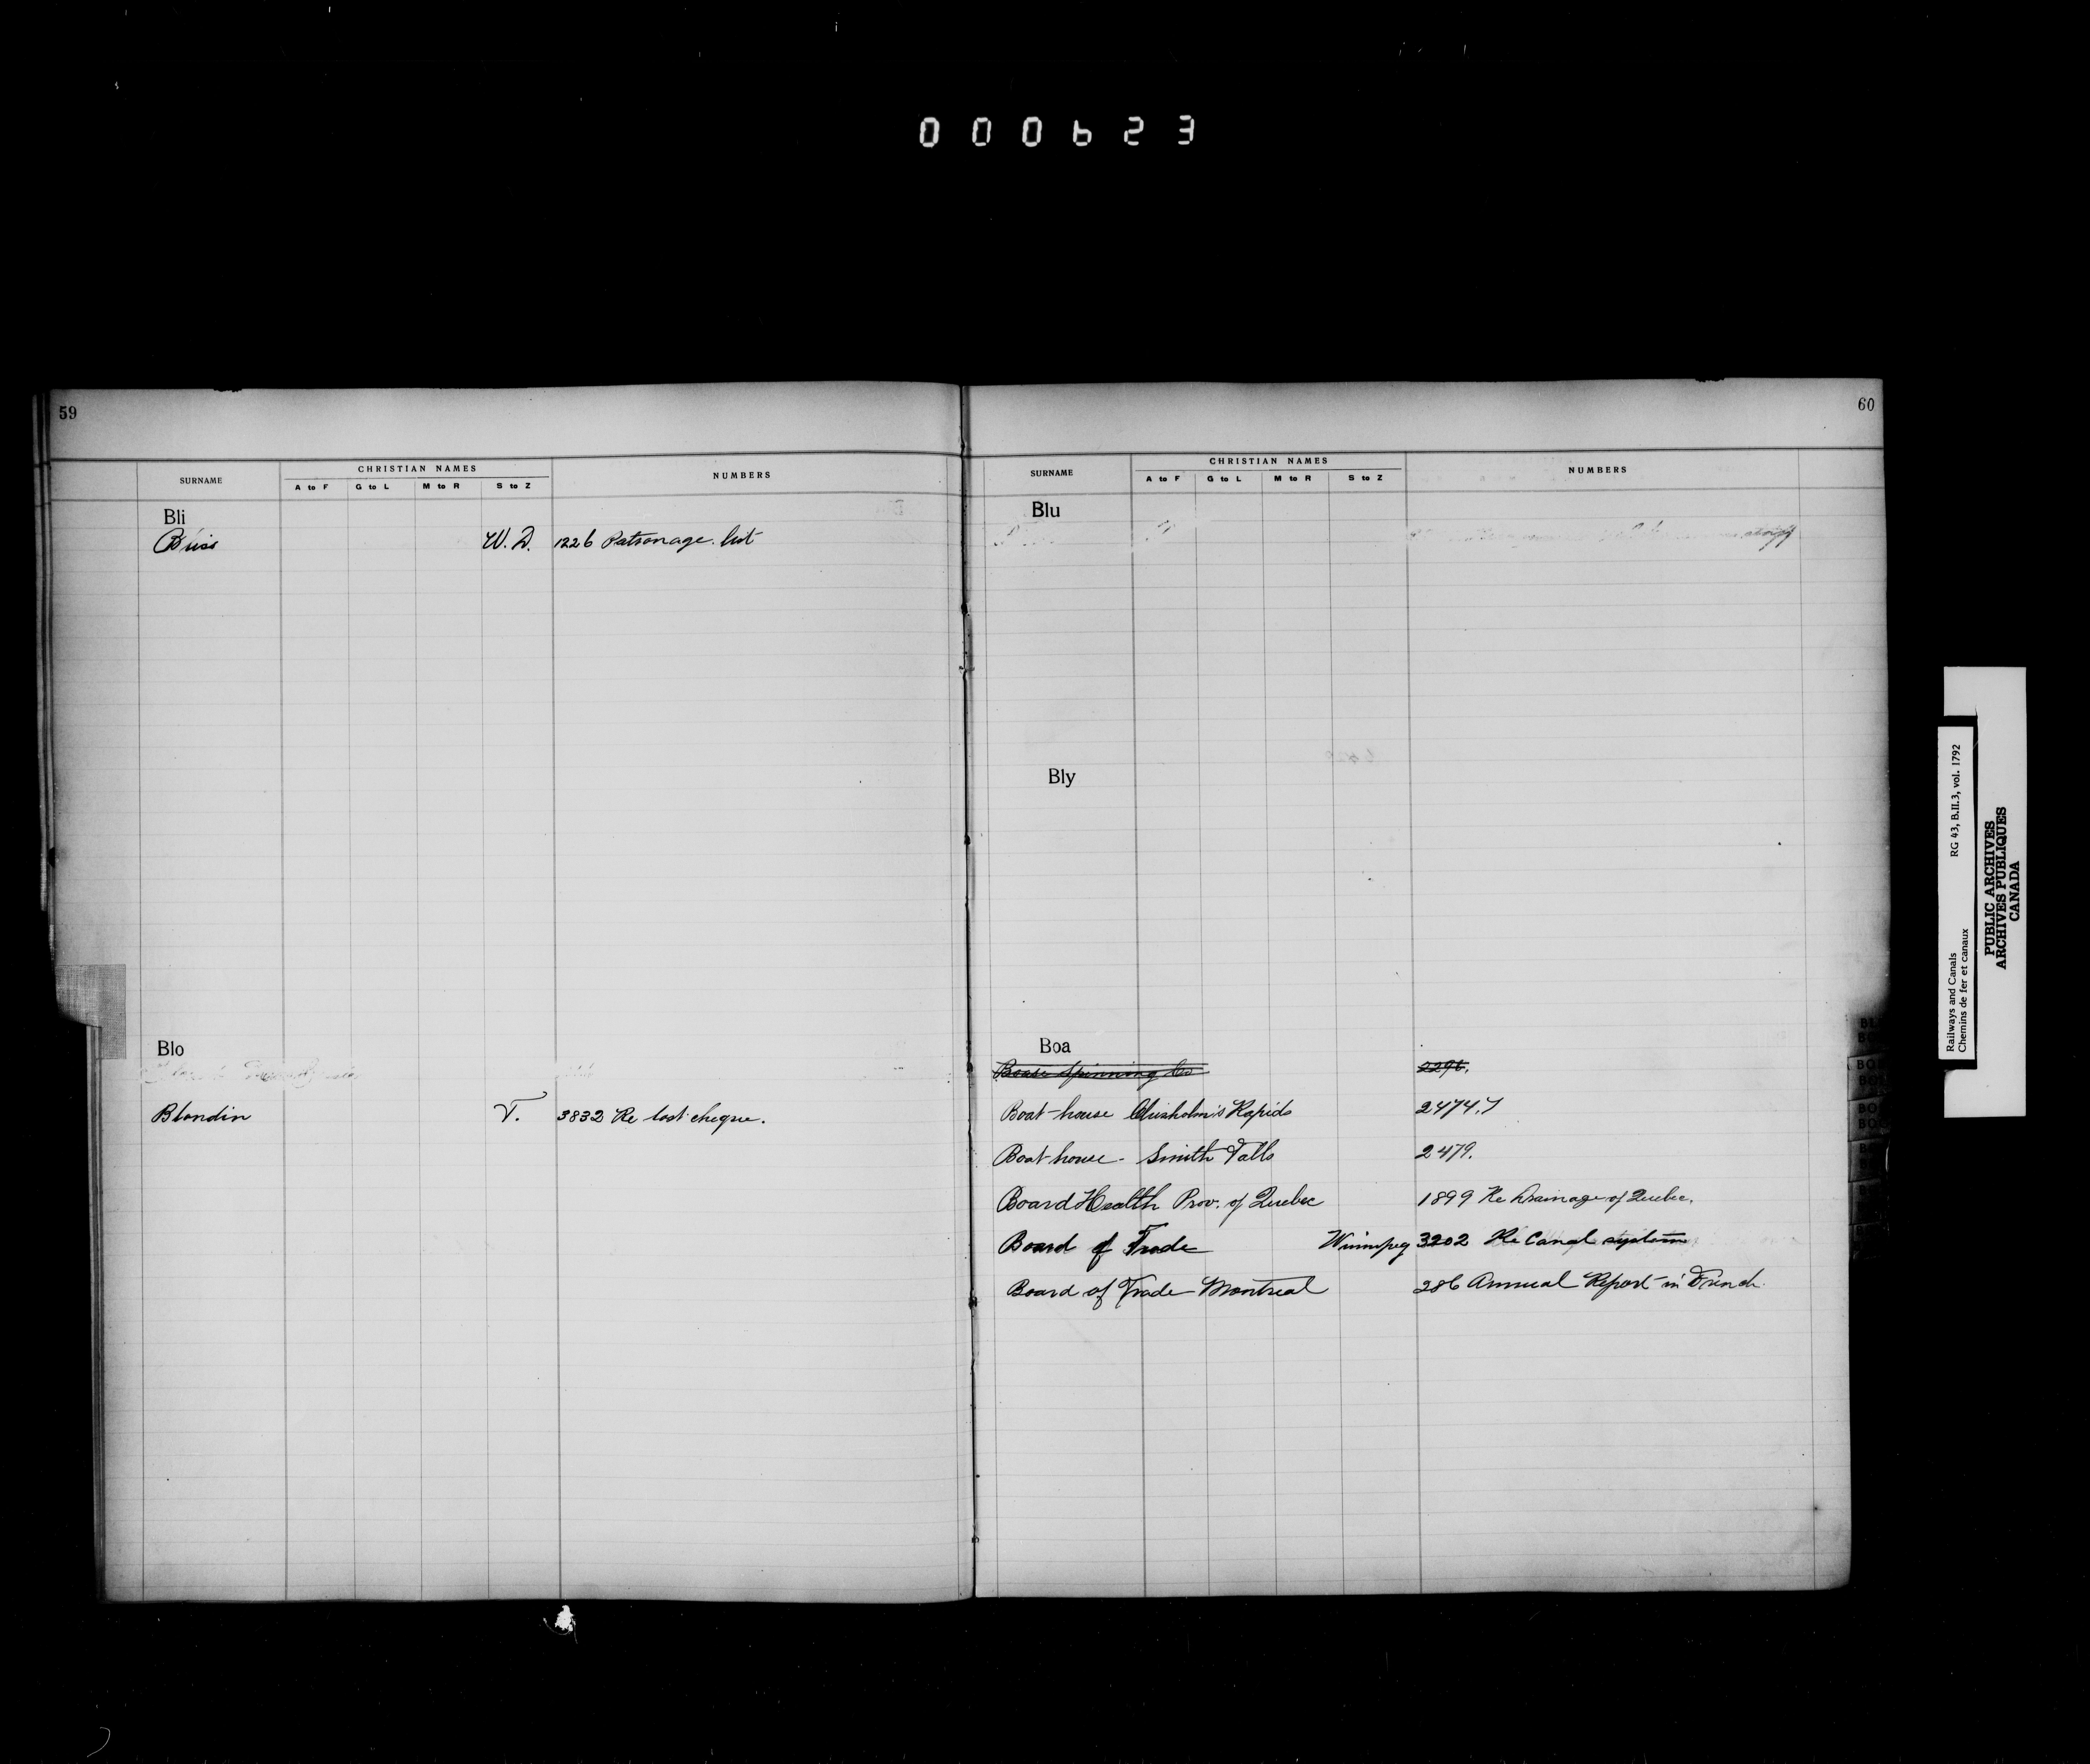 000623
59
SURNAME CHRISTIAN NAMES NUMBERS
A to F G to L M to R S to Z
Bli
Bliss W. D. 1226 Patronage list
Blo
Blondin V. 3832 Re lost cheque.
60
SURNAME CHRISTIAN NAMES NUMBERS
A to F G to L M to R S to Z
Blu
Bly
Boa
Spinning Co 2296.
Boat-house Chisholm's Rapids 2474.
Boat-house - Smith Falls 2479.
Board Health Prov. of Quebec 1899 Re Drainage of Quebec.
Board of Trade Winnipeg 3202 Re Canal system
Board of Trade Montreal 286 Annual Report in French.
Railways and Canals RG 43, B.II.3, vol. 1792
Chemins de fer et canaux
PUBLIC ARCHIVES
ARCHIVES PUBLIQUES
CANADA